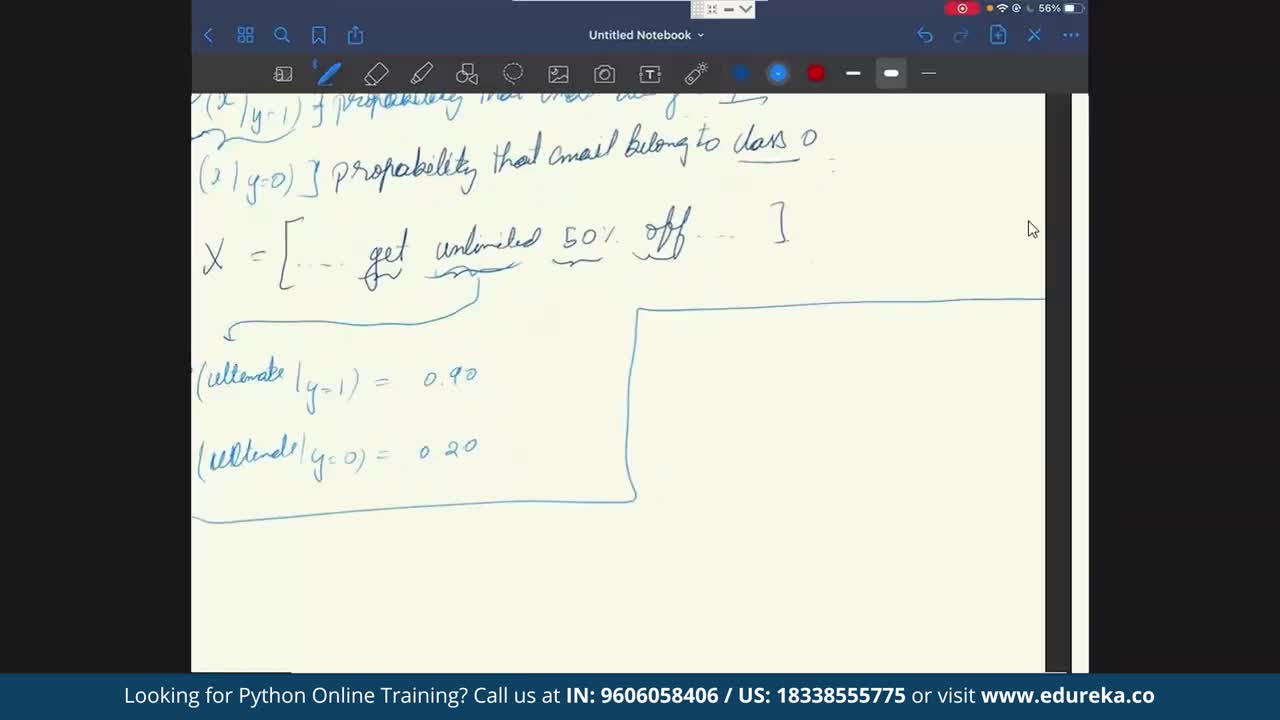 56%
Untitled Notebook
(x | y=1) } propability that
(x | y=0) ] propability that email belong to class 0
X = [ ..... get unlimited 50% off .... ]
(ultemate | y=1) = 0.90
y=0) = 0.20
Looking for Python Online Training? Call us at IN: 9606058406 / US: 18338555775 or visit www.edureka.co